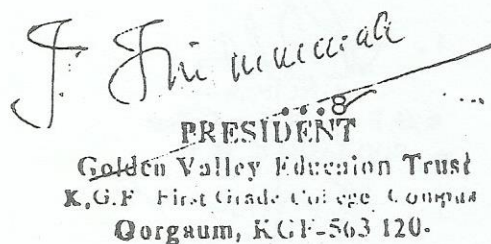 ...8
PRESIDENT
Golden Valley Educaion Trust
K.G.F First Grade College Compus
Oorgaum, KGF-563 120.